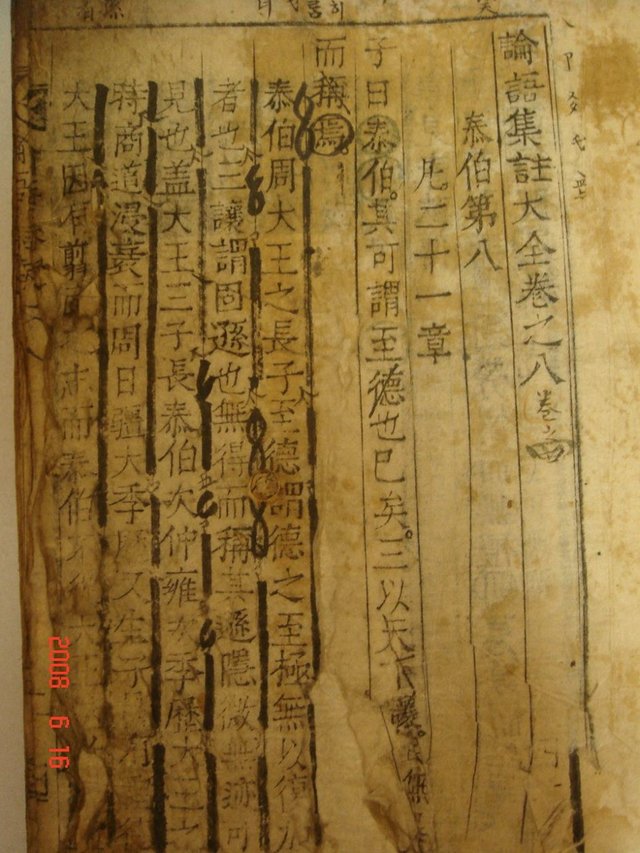 論語集註大全卷之八 卷之四
泰伯第八
凡二十一章
子曰泰伯。其可謂至德也已矣。三以天下讓。民無
而稱焉
泰伯周大王之長子至德謂德之至極無以復加
者也三讓謂固遜也無得而稱其遜隱微無迹可
見也盖大王三子長泰伯次仲雍次季歷大王之
時商道浸衰而周日疆大季歷又生子
大王因有翦之志而泰伯不
2008 6 16